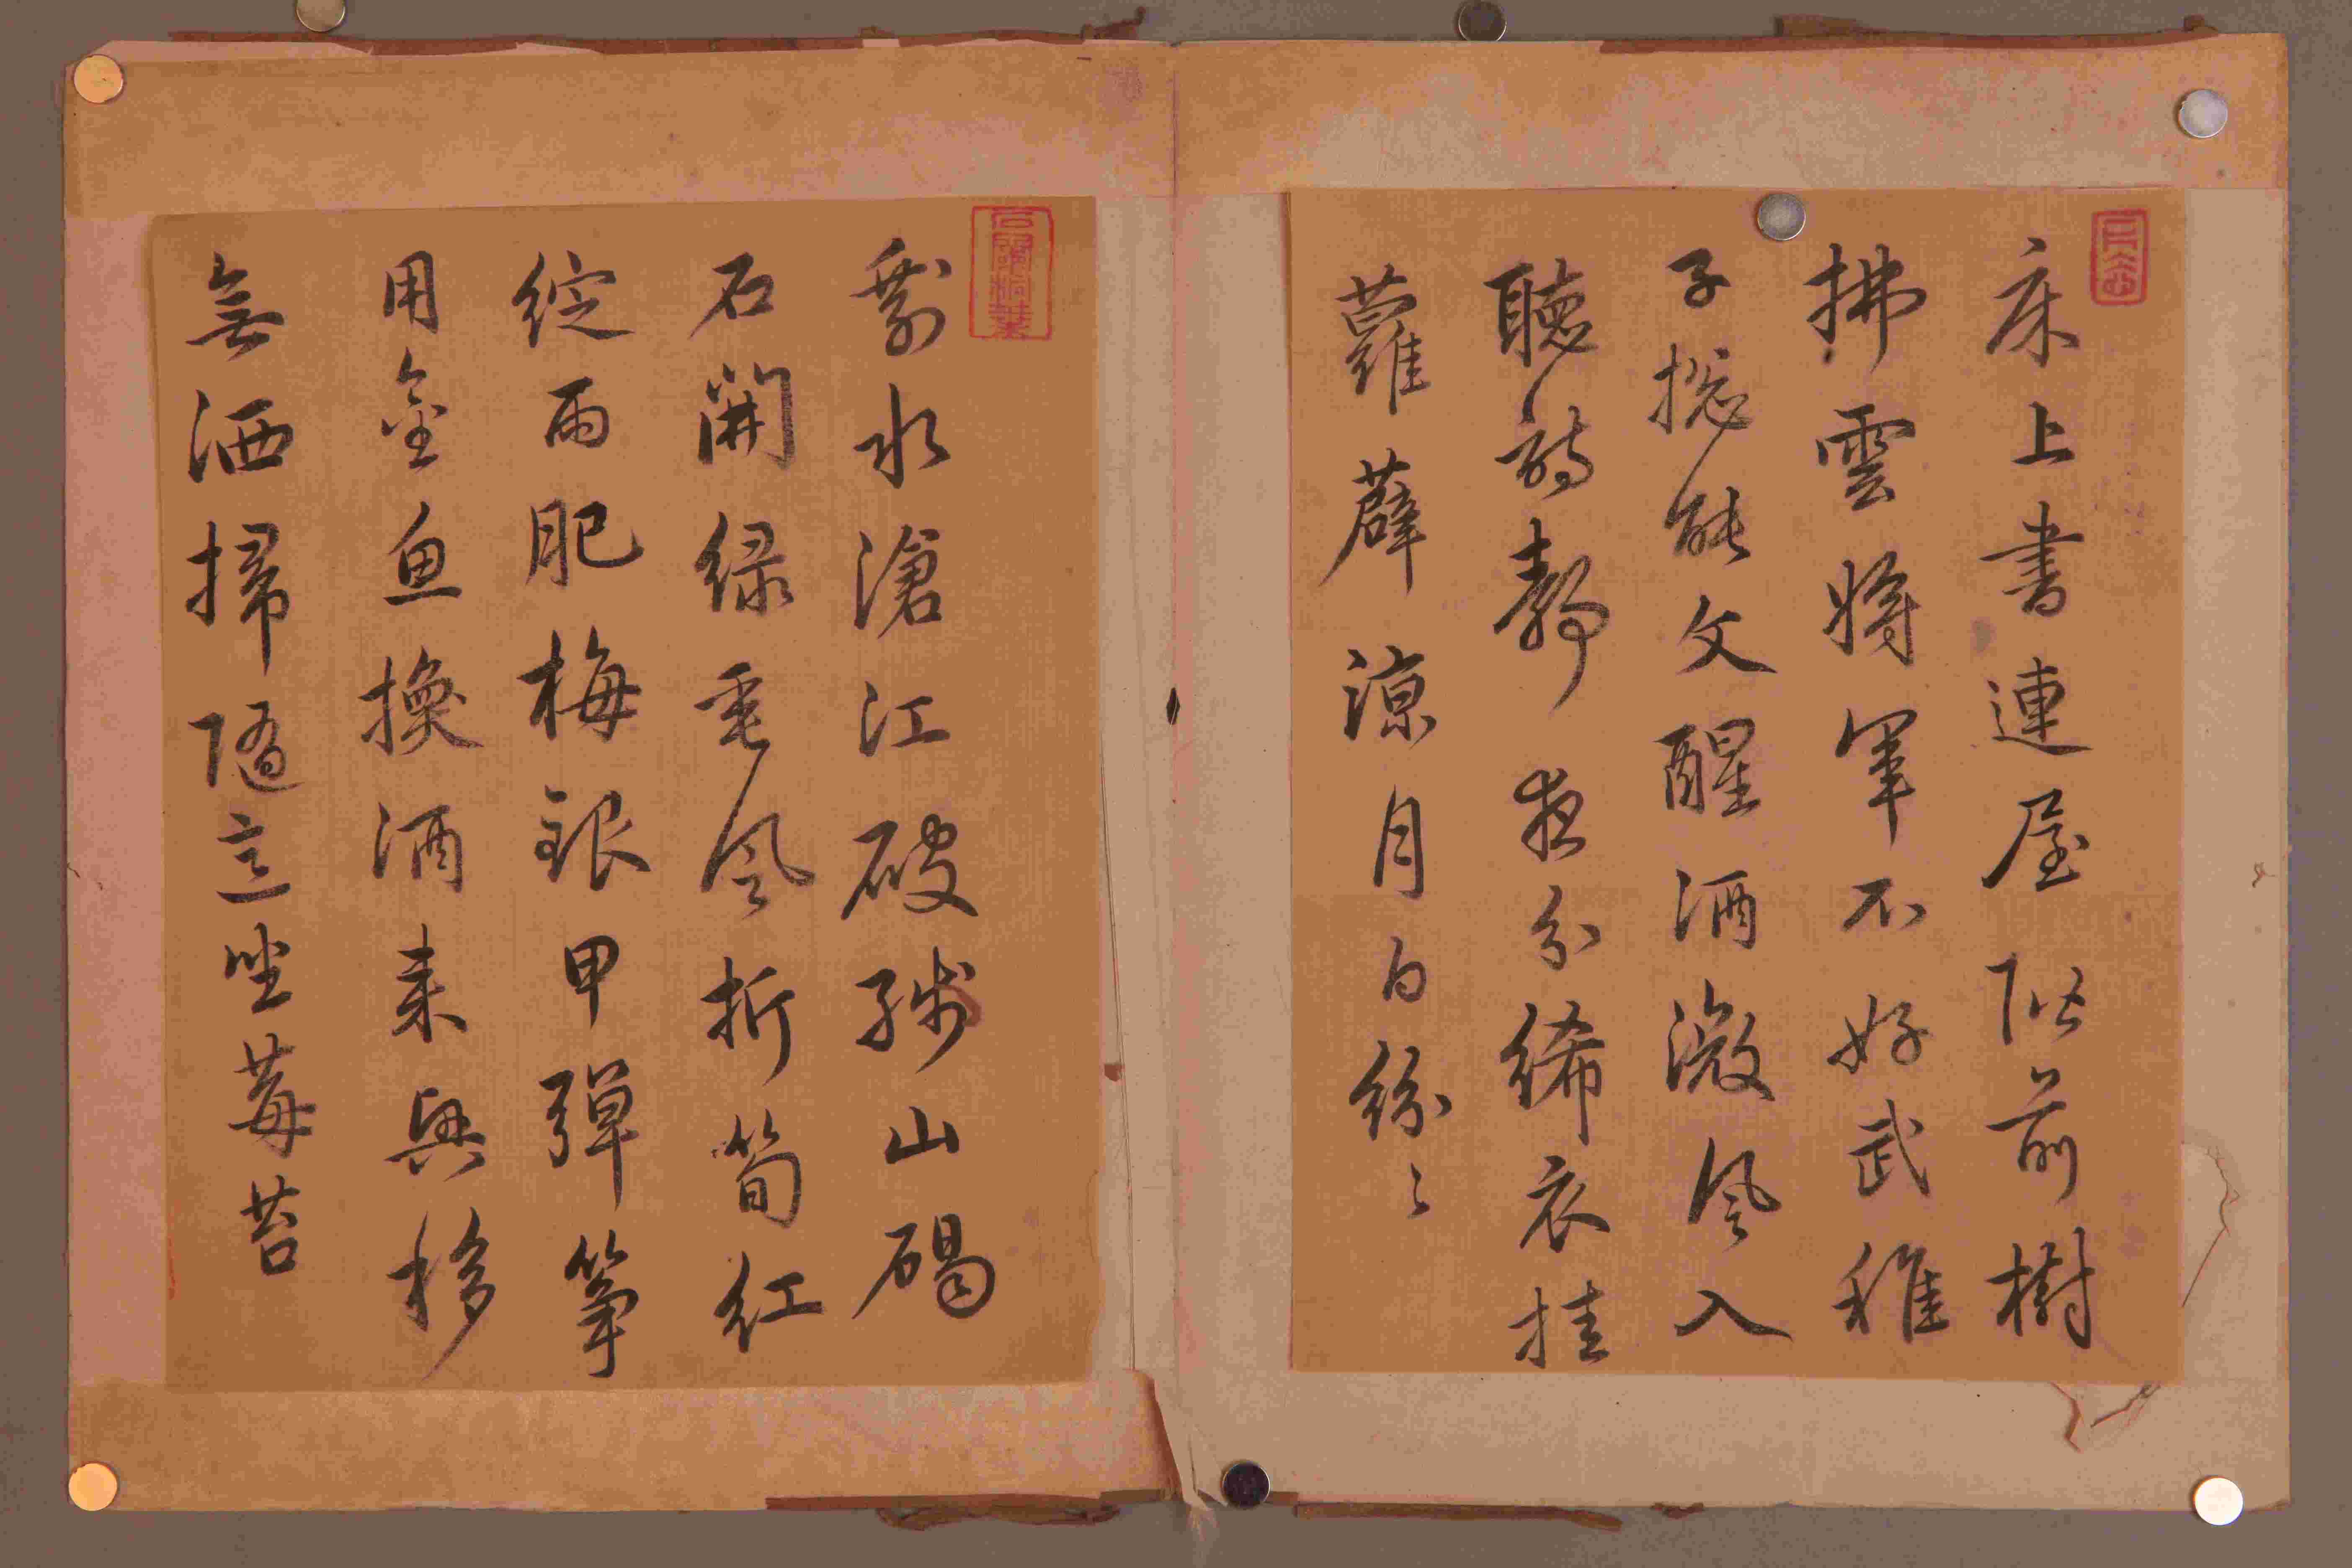 床上書連屋階前樹
拂雲將軍不好武稚
子摠能文醒酒微風入
聽詩靜夜分絺衣挂
蘿薜涼月白紛々
剩水滄江破殘山碣
石開綠垂風折筍紅
綻雨肥梅銀甲彈箏
用金魚換酒来興移
無洒掃隨意坐莓苔